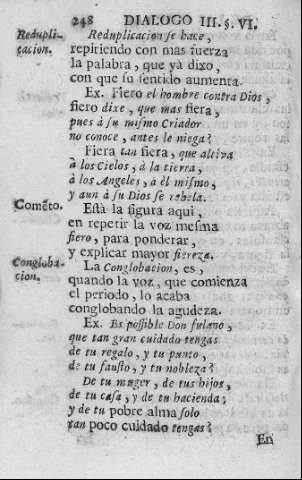 248 DIALOGO III. §. VI.
Redupli- Reduplicacion se hace,
cacion. repitiendo con mas fuerza
la palabra, que yà dixo,
con que su sentido aumenta.
Ex. Fiero el hombre contra Dios,
fiero dixe, que mas fiera,
pues à su mismo Criador
no conoce, antes le niega?
Fiera tan fiera, que altiva
à los Cielos, à la tierra,
à los Angeles, à èl mismo,
y aun à su Dios se rebela.
Comẽto. Està la figura aqui,
en repetir la voz mesma
fiero, para ponderar,
y explicar mayor fiereza.
Conglobacion. La Conglobacion, es,
quando la voz, que comienza
el periodo, lo acaba
conglobando la agudeza.
Ex. Es possible Don fulano,
que tan gran cuidado tengas
de tu regalo, y tu punto,
de tu fausto, y tu nobleza?
De tu muger, de tus hijos,
de tu casa, y de tu hacienda;
y de tu pobre alma solo
tan poco cuidado tengas?
En